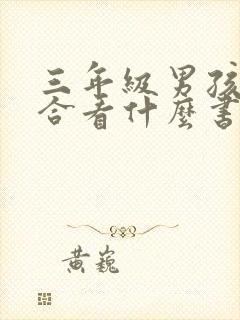 三年級男孩
合看什麼書
黃巍